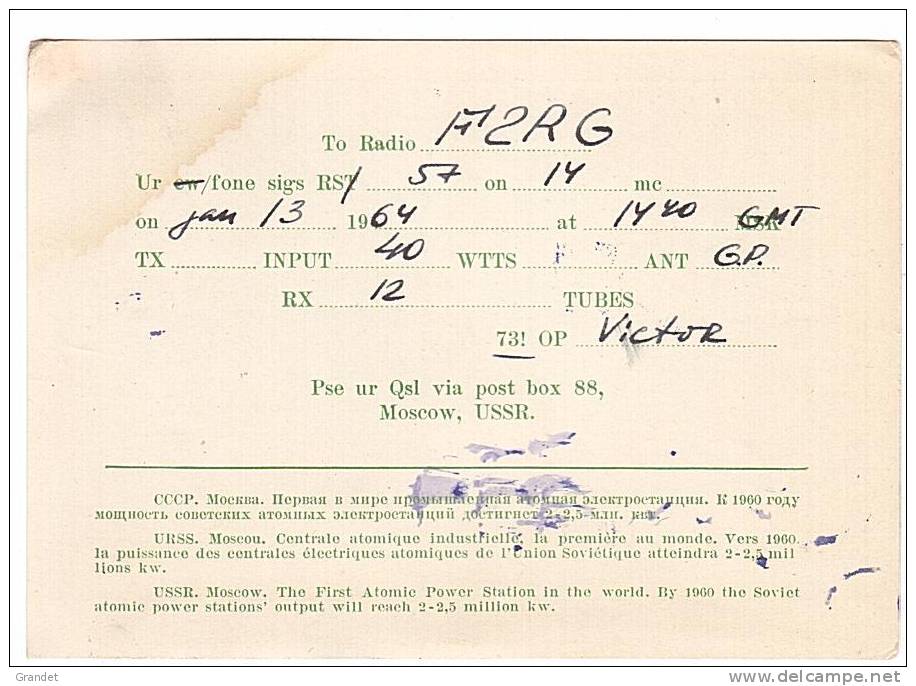 To Radio F2RG
Ur cw/fone sigs RST 57 on 14 mc
on jan 13 1964 at 1440 MSK GMT
TX INPUT 40 WTTS ANT G.P.
RX 12 TUBES
73! OP Victor
Pse ur Qsl via post box 88,
Moscow, USSR.
СССР. Москва. Первая в мире промышленная атомная электростанция. К 1960 году
мощность советских атомных электростанций достигнет 2-2,5 млн. квт.
URSS. Moscou. Centrale atomique industrielle, la première au monde. Vers 1960.
la puissance des centrales électriques atomiques de l'Union Soviétique atteindra 2-2,5 mil
lions kw.
USSR. Moscow. The First Atomic Power Station in the world. By 1960 the Soviet
atomic power stations' output will reach 2-2,5 million kw.
Grandet
www.delcampe.net